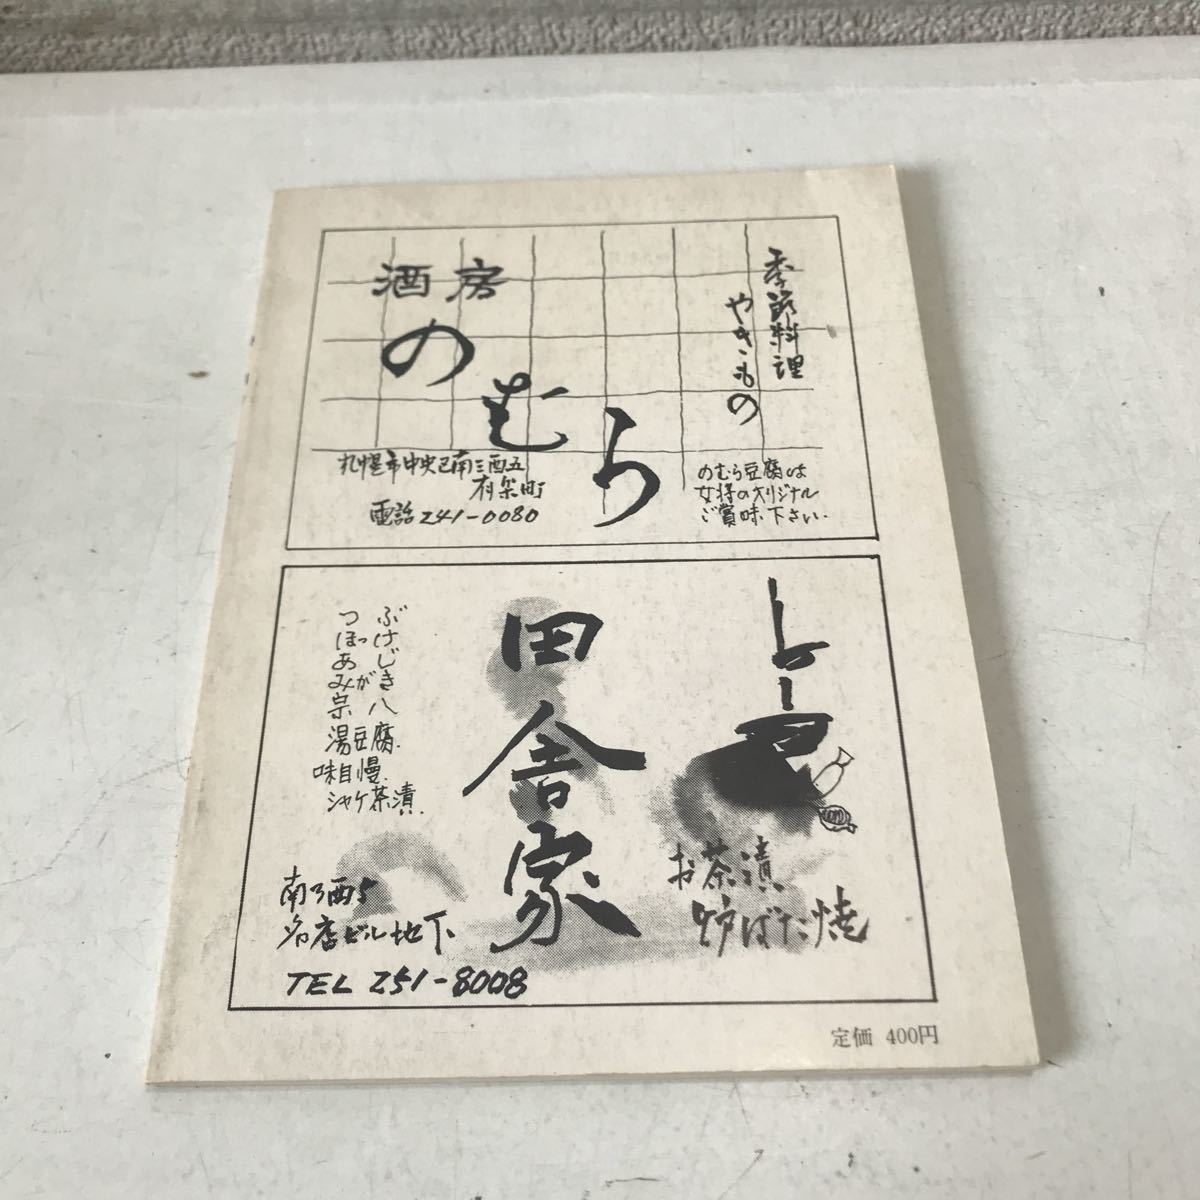 季節料理
やきもの
酒房
のむら
札幌市中央区南三西五
有楽町
電話 241-0080
のむら豆腐は
女将のオリジナル
ご賞味下さい.
田舎家
お茶漬
炉ばた焼
ぶけじき
つぼみ
宗八
湯豆腐.
味自慢.
シャケ茶漬.
南3西5
名店ビル地下
TEL 251-8008
定価 400円